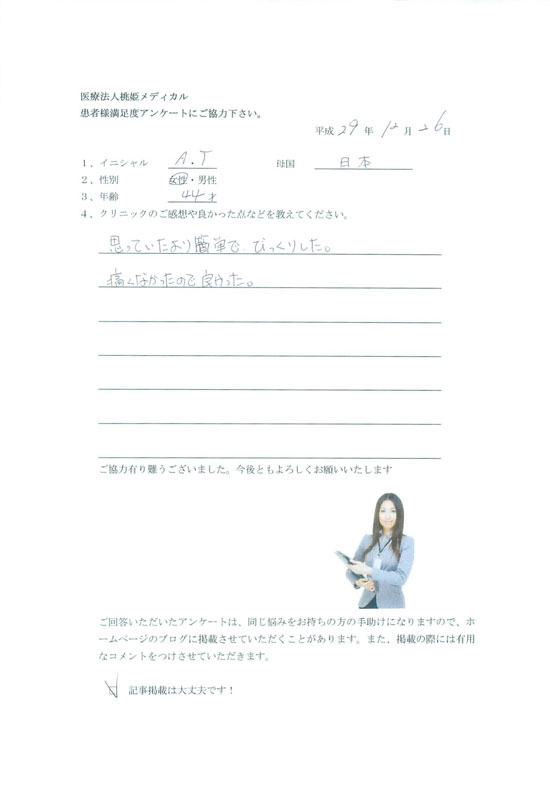 医療法人桃姫メディカル
患者様満足度アンケートにご協力下さい。
平成 29 年 12 月 26 日
1、イニシャル A.T 母国 日本
2、性別 女性・男性
3、年齢 44才
4、クリニックのご感想や良かった点などを教えてください。
思っていたより簡単で、びっくりした。
痛くなかったので良かった。
ご協力有り難うございました。今後ともよろしくお願いいたします
ご回答いただいたアンケートは、同じ悩みをお持ちの方の手助けになりますので、ホ
ームページのブログに掲載させていただくことがあります。また、掲載の際には有用
なコメントをつけさせていただきます。
記事掲載は大丈夫です！